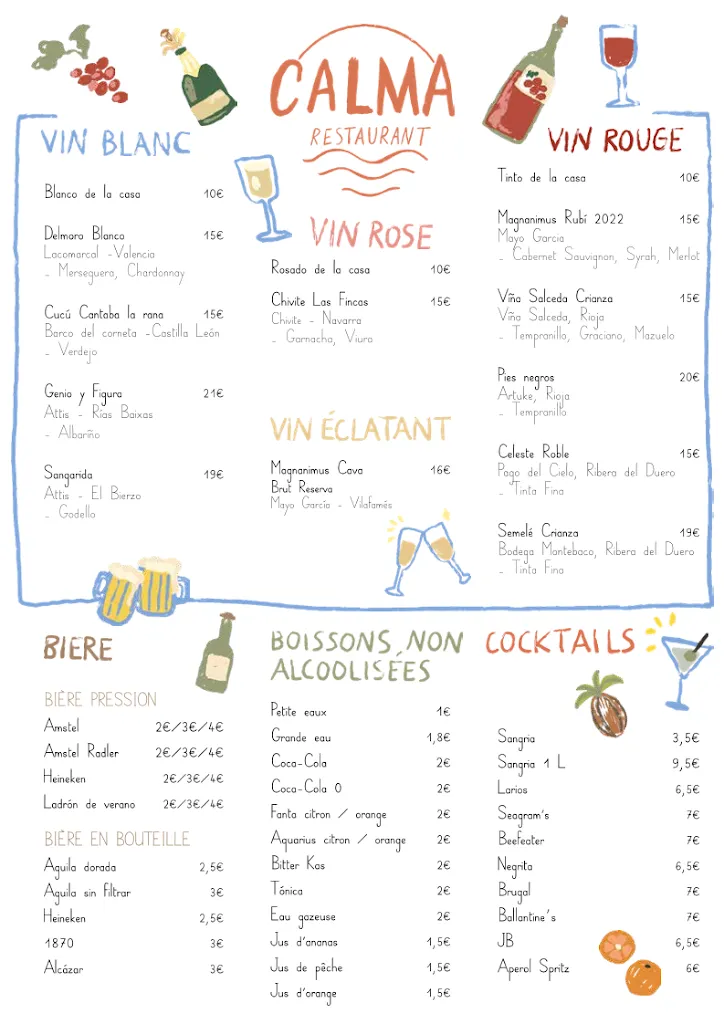 CALMA
RESTAURANT
VIN BLANC
Blanco de la casa 10€
Delmoro Blanco 15€
Lacomarcal -Valencia
- Merseguera, Chardonnay
Cucú Cantaba la rana 15€
Barco del corneta -Castilla León
- Verdejo
Genio y Figura 21€
Attis - Rías Baixas
- Albariño
Sangarida 19€
Attis - El Bierzo
- Godello
VIN ROSE
Rosado de la casa 10€
Chivite Las Fincas 15€
Chivite - Navarra
- Garnacha, Viura
VIN ÉCLATANT
Magnanimus Cava 16€
Brut Reserva
Mayo García - Vilafamés
VIN ROUGE
Tinto de la casa 10€
Magnanimus Rubí 2022 15€
Mayo Garcia
- Cabernet Sauvignon, Syrah, Merlot
Viña Salceda Crianza 15€
Viña Salceda, Rioja
- Tempranillo, Graciano, Mazuelo
Pies negros 20€
Artuke, Rioja
- Tempranillo
Celeste Roble 15€
Pago del Cielo, Ribera del Duero
- Tinta Fina
Semelé Crianza 19€
Bodega Montebaco, Ribera del Duero
- Tinta Fina
BIERE
BIÈRE PRESSION
Amstel 2€/3€/4€
Amstel Radler 2€/3€/4€
Heineken 2€/3€/4€
Ladrón de verano 2€/3€/4€
BIÈRE EN BOUTEILLE
Aguila dorada 2,5€
Aguila sin filtrar 3€
Heineken 2,5€
1870 3€
Alcázar 3€
BOISSONS NON
ALCOOLISÉES
Petite eaux 1€
Grande eau 1,8€
Coca-Cola 2€
Coca-Cola 0 2€
Fanta citron / orange 2€
Aquarius citron / orange 2€
Bitter Kas 2€
Tónica 2€
Eau gazeuse 2€
Jus d'ananas 1,5€
Jus de pêche 1,5€
Jus d'orange 1,5€
COCKTAILS
Sangria 3,5€
Sangria 1 L 9,5€
Larios 6,5€
Seagram's 7€
Beefeater 7€
Negrita 6,5€
Brugal 7€
Ballantine's 7€
JB 6,5€
Aperol Spritz 6€